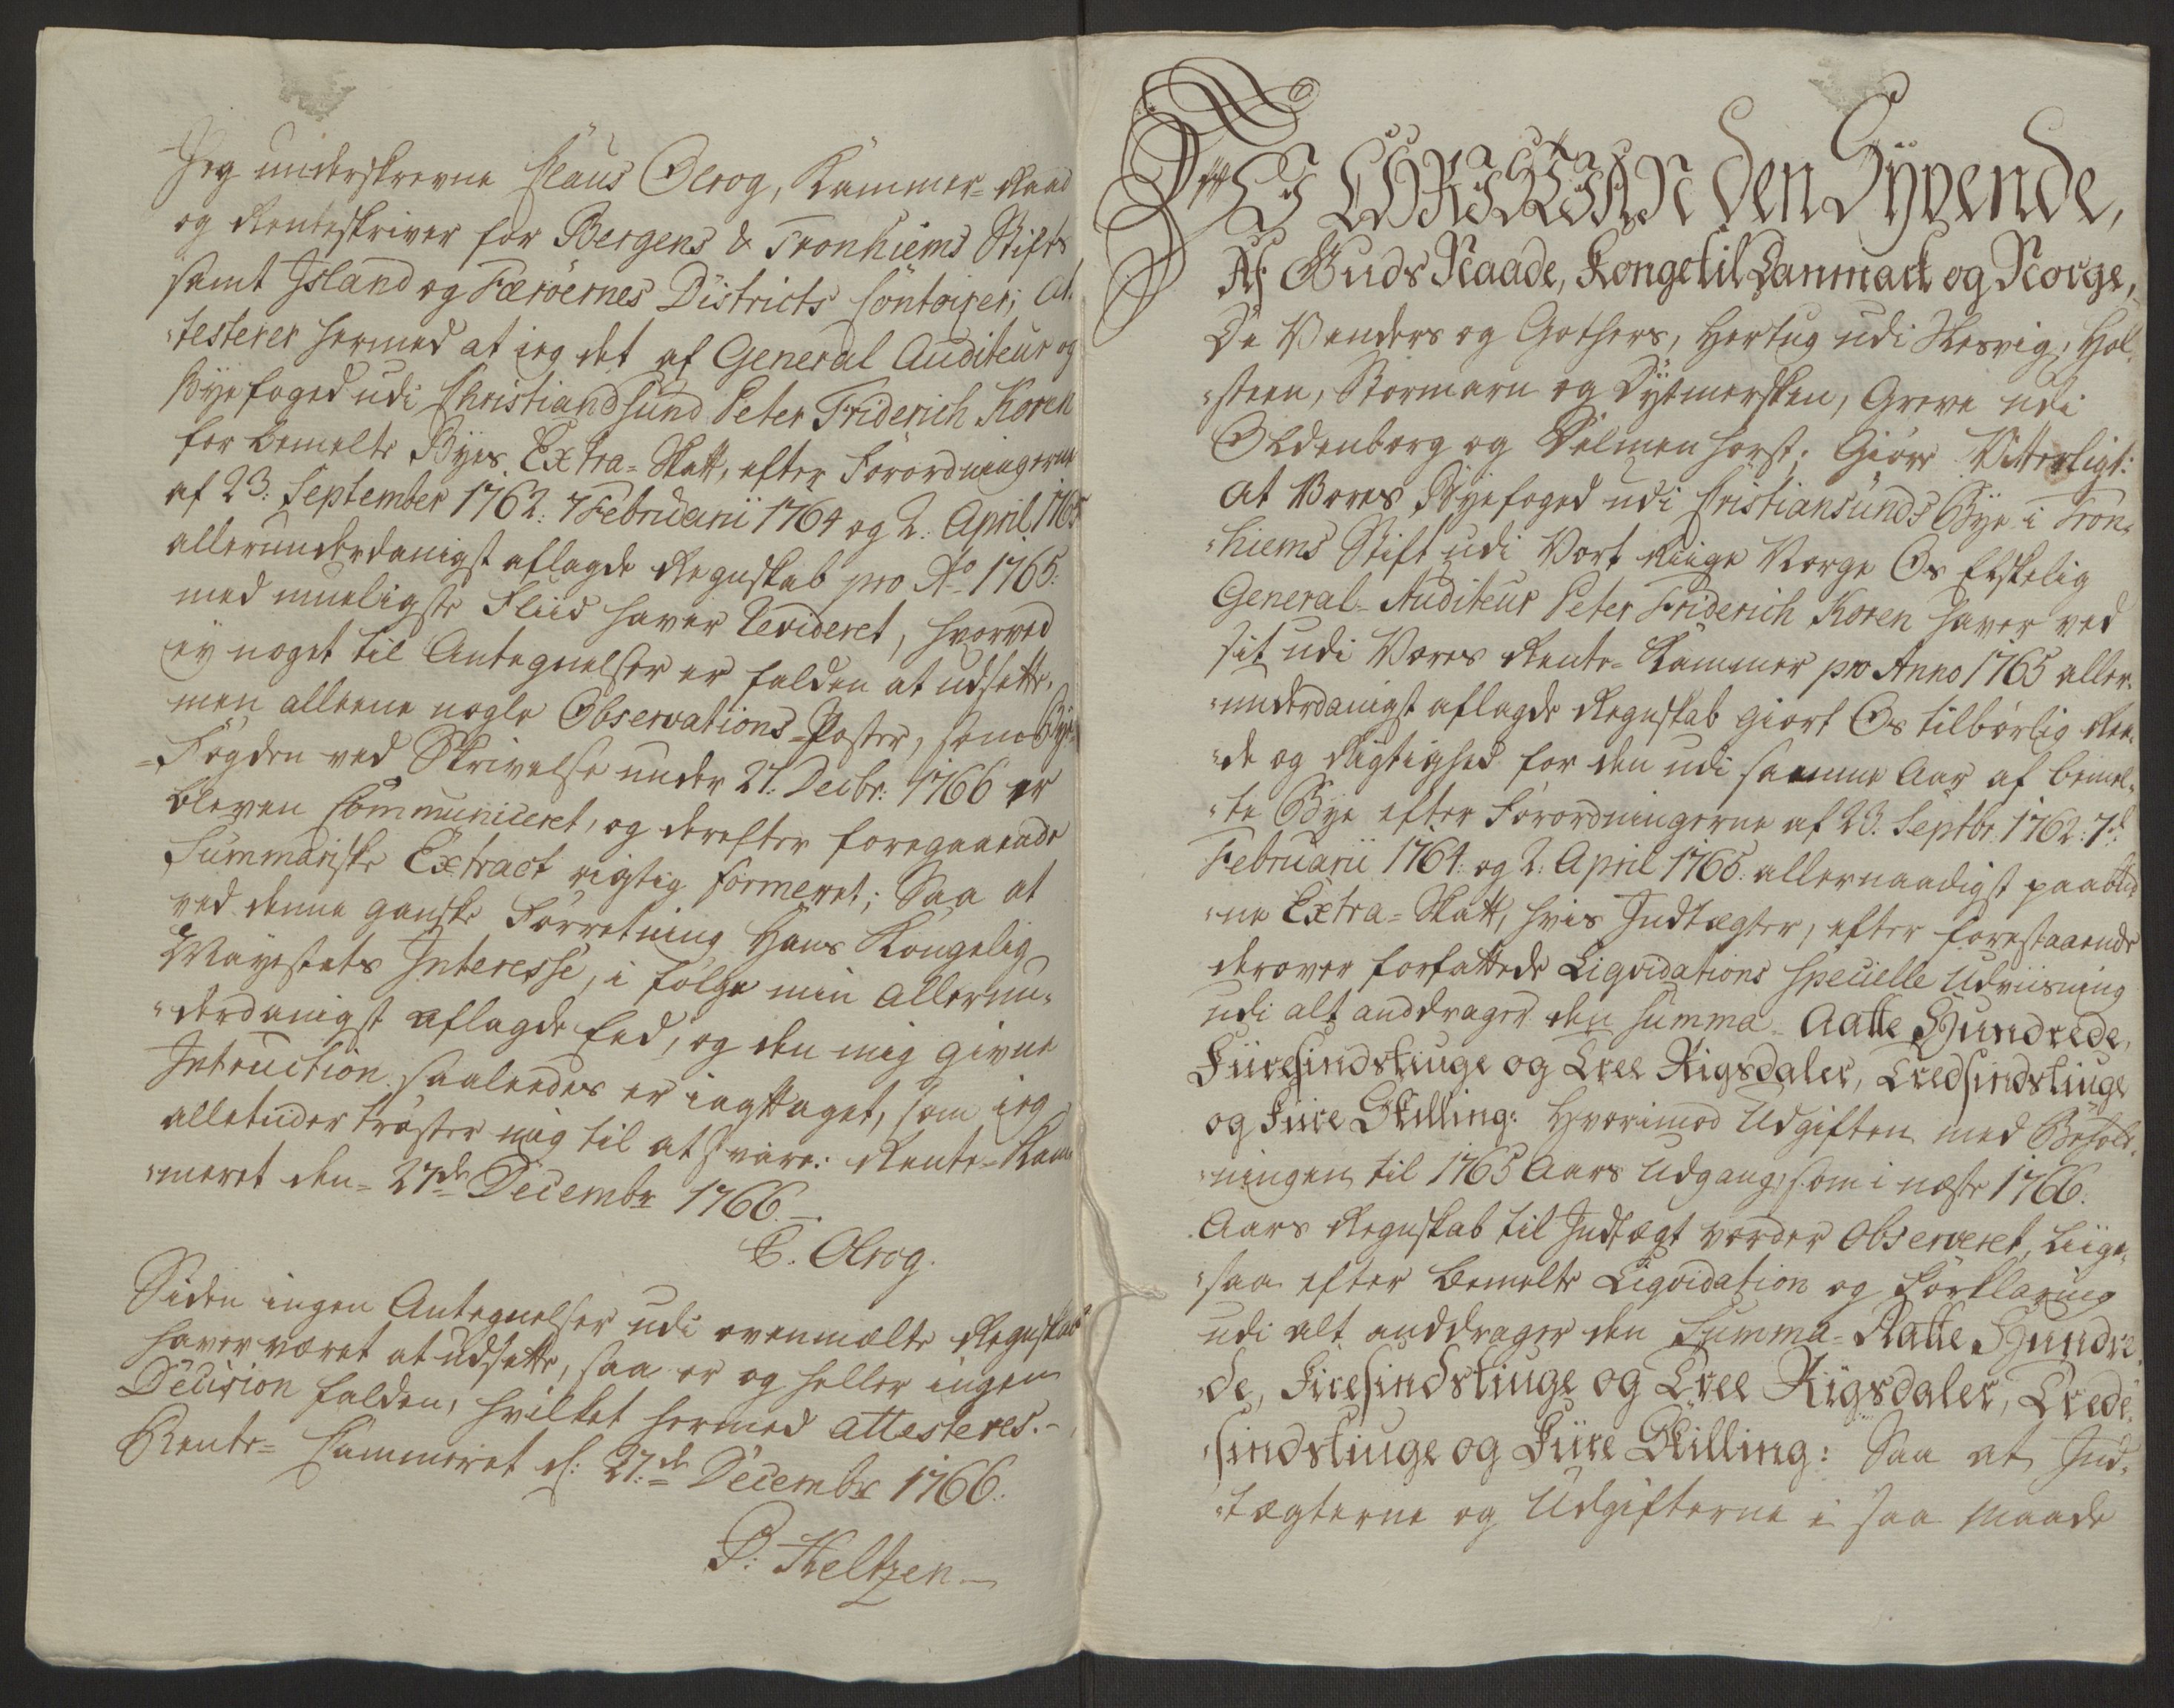 Jeg underskrevne Claus Olrog, Kammer-Raad
og Renteskriver for Bergens & Tronhiems Stifts
samt Jsland og Færöernes Districts Contoirer; At-
testerer hermed at jeg det af General Auditeur og
Byefoged udi Christiandsund Peter Friderich Koren
for bemelte Byes Extra-Skatt, efter Forordningerne
af 23. September 1762. 7 Februarii 1764 og 2. April 1765
allerunderdanigst aflagde Regnskab pro Ao 1765.
med mueligste Fliid haver Revideret, hvorved
ey noget til Antegnelser er falden at udsette,
men alleene nogle Observations-Poster, som Bye-
Fogden ved Skrivelse under 27. Decbr. 1766 er
bleven Communiceret, og derefter foregaaende
Summariske Extract rigtig formeret; Saa at
ved denne ganske Forretning Hans Kongelig
Mayestets Interesse, i fölge min allerun-
derdanigst aflagde Eed, og den mig givne
Intruction saaledes er iagttaget, som jeg
alletiider tröster mig til at svare. Rente-Kam-
meret den 27de Decembr 1766.
C. Olrog.
Siden ingen Antegnelser udi ovenmelte Regnskab
haver været at udsette, saa er og heller ingen
Decision falden, hvilket hermed attesteres.
Rente-Cammeret d: 27.de Decembr 1766.
P: Heltzen
Wy CHRISTIAN den Syvende,
Af Guds Naade, Konge til Danmark og Norge,
De Venders og Gothers, Hertug udi Slesvig, Hol-
steen, Stormarn og Dytmersken, Greve udi
Oldenborg og Delmenhorst; Giöre Vitterligt:
At Vores Byefoged udi Cristiansunds Bye i Tron-
hiems Stift udi Vort Riige Norge Os Elskelig
General-Auditeur Peter Friderich Koren haver ved
sit udi Vores Rente-Kammer pro Anno 1765 aller-
underdanigst aflagde Regnskab giort Os tilbörlig Ree-
de og Rigtighed for den udi samme Aar af bemel-
te Bye efter Forordningerne af 23. Septbr. 1762. 7de
Februarii 1764. og 2. April 1765. allernaadigst paabud-
ne Extra-Skatt, hvis Indtægter, efter forestaaende
derover forfattede Liqvidations specielle Udviisning
udi alt anddrager den Summa Aatte Hundrede,
Fiiresindstiuge og Tree Rigsdaler, Tredsindstiuge
og Fiire Skilling: Hvorimod Udgiften med Behold-
ningen til 1765 Aars Udgang, som i næste 1766.
Aars Regnskab til Indtægt vorder Observeret, liige-
saa efter bemelte Liqvidation og Forklaring
udi alt anddrager den Summa Aatte Hundre-
de, Firesindstiuge og Tree Rigsdaler, Trede-
sindstiuge og Fiire Skilling: Saa at Ind-
tægterne og Udgifterne i saa Maade